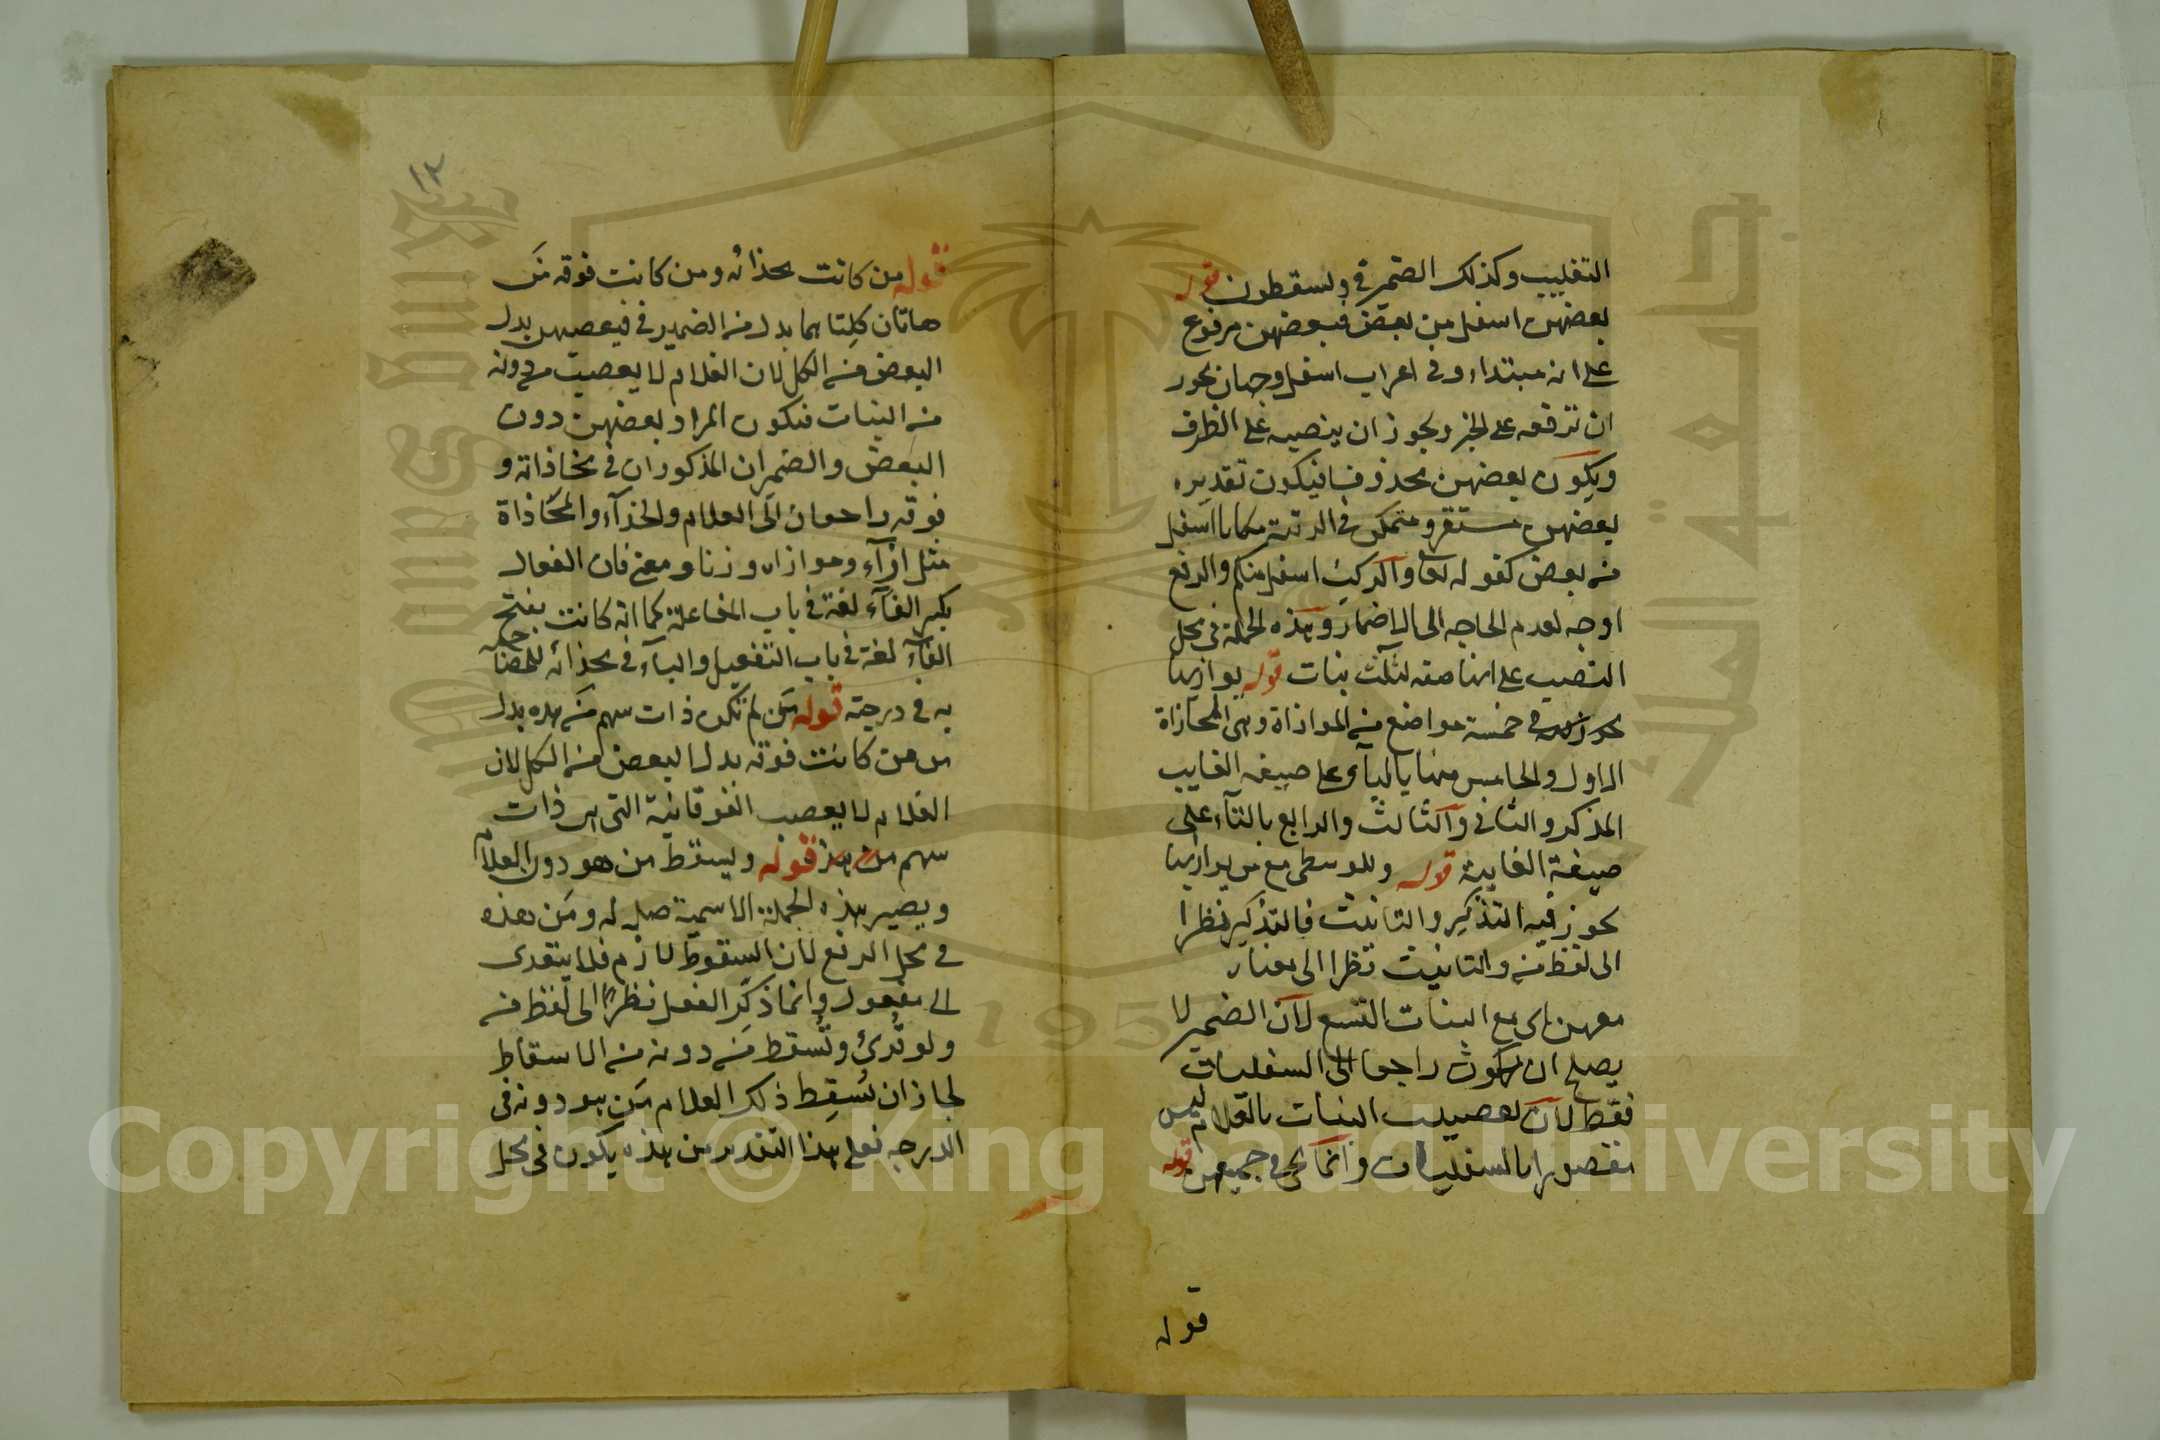 التغليب وكذلك الضمير في ويسقطون قوله
بعضهن اسفل من بعض فبعضهن مرفوع
على انه مبتداء وفى اعراب اسفل وجهان يجوز
ان ترفعه على الخبر ويجوز ان ينصبه على الظرف
ويكون بعضهن محذوفا فيكون تقديره
بعضهن مستقر ومتمكن في الرتبة مكانا اسفل
من بعض كقوله تعا والركب اسفل منكم والرفع
اوجه لعدم الحاجه الى الاضمار وهذه الجملة فى محل
النصب على انها صفه لثلث بنات قوله يوازيها
في خمسة مواضع من الموازاة وهى المحازاة
الاول والخامس منها بالياء على صيغه الغايب
المذكر والثاني والثالث والرابع بالتاء على
صيغة الغايبة قوله وللوسطى مع من يوازيها
يجوز فيه التذكير والتانيث فالتذكير نظرا
الى لفظ من والتانيث نظرا الى معناه
معهن اى مع البنات التسع لان الضمير لا
يصلح ان يكون راجعا الى السفليات
فقط لان تعصيب البنات بالغلام ليس
مقصورا بالسفليات وانما يجى فى جميعهن قوله
قوله
١٢
قوله من كانت بحذائه ومن كانت فوقه من
هاتان كلتاهما بدل من الضمير في فيعصبهن بدل
البعض من الكل لان الغلام لا يعصب من دونه
من البنات فيكون المراد بعضهن دون
البعض والضميران المذكوران في بحذائه و
فوقه راجعان الى الغلام والحذاء والمحاذاة
مثل ازاء وموازاه وزنا ومعنى فان الفعال
بكسر الفاء لغة في باب المفاعلة كما انه كانت بفتح
الفاء لغة في باب التفعيل والباء في بحذائه للمصاحبة
به في درجته قوله من لم تكن ذات سهم من هذه بدل
من من كانت فوقه بدل البعض من الكل لان
الغلام لا يعصب الفوقانية التى هى ذات
سهم من هذه قوله ويسقط من هو دون الغلام
ويصير هذه الجملة الاسمية صله له ومن هذه
في محل الرفع لان السقوط لازم فلا يتعدى
الى مفعول وانما ذكر الفعل نظرا الى لفظ من
ولو قرئ وتسقط من دونه من الاسقاط
لجاز ان يسقط ذلك الغلام من هو دونه فى
الدرجه فعلى هذا التقدير من هذه يكون فى محل
Copyright © King Saud University
جامعة الملك
King Saud
1957